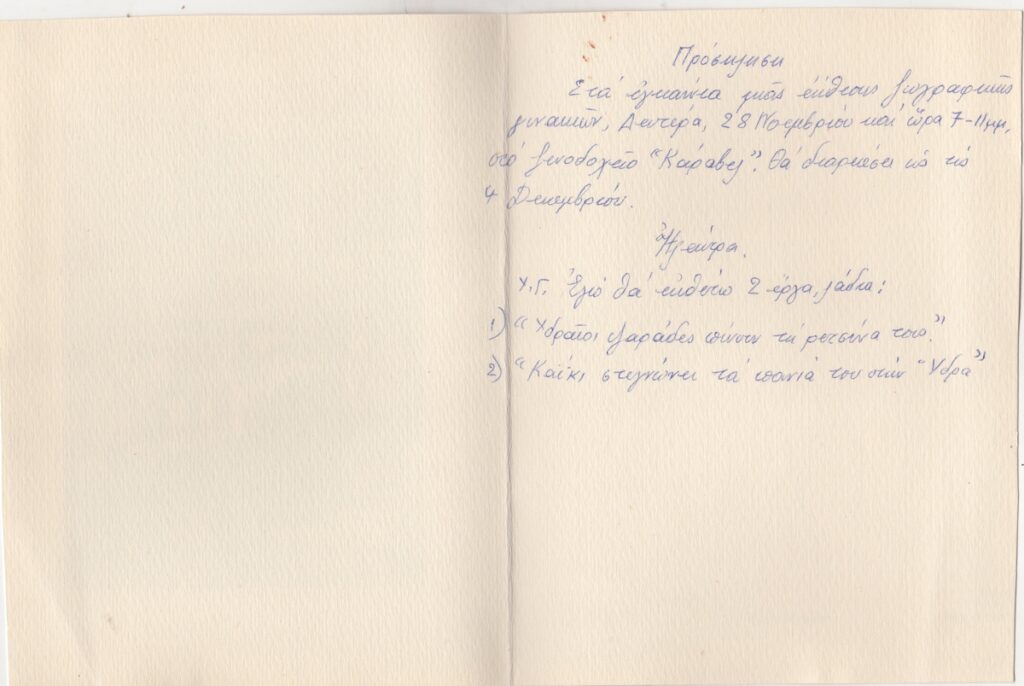 Πρόσκληση
Στά ἐγκαίνια μιᾶς ἐκθέσεως ζωγραφικῆς
γυναικῶν, Δευτέρα, 28 Νοεμβρίου καί ὥρα 7-11μμ,
στό ξενοδοχεῖο "Κάραβελ". Θά διαρκέσει ὡς τίς
4 Δεκεμβρίου.
Ἠλέκτρα.
Υ.Γ. Ἐγώ θά ἐκθέτω 2 ἔργα, λάδια:
1) "Ὑδραῖοι ψαράδες πίνουν τή ρετσίνα τους"
2) "Καΐκι στεγνώνει τά πανιά του στήν Ὕδρα"